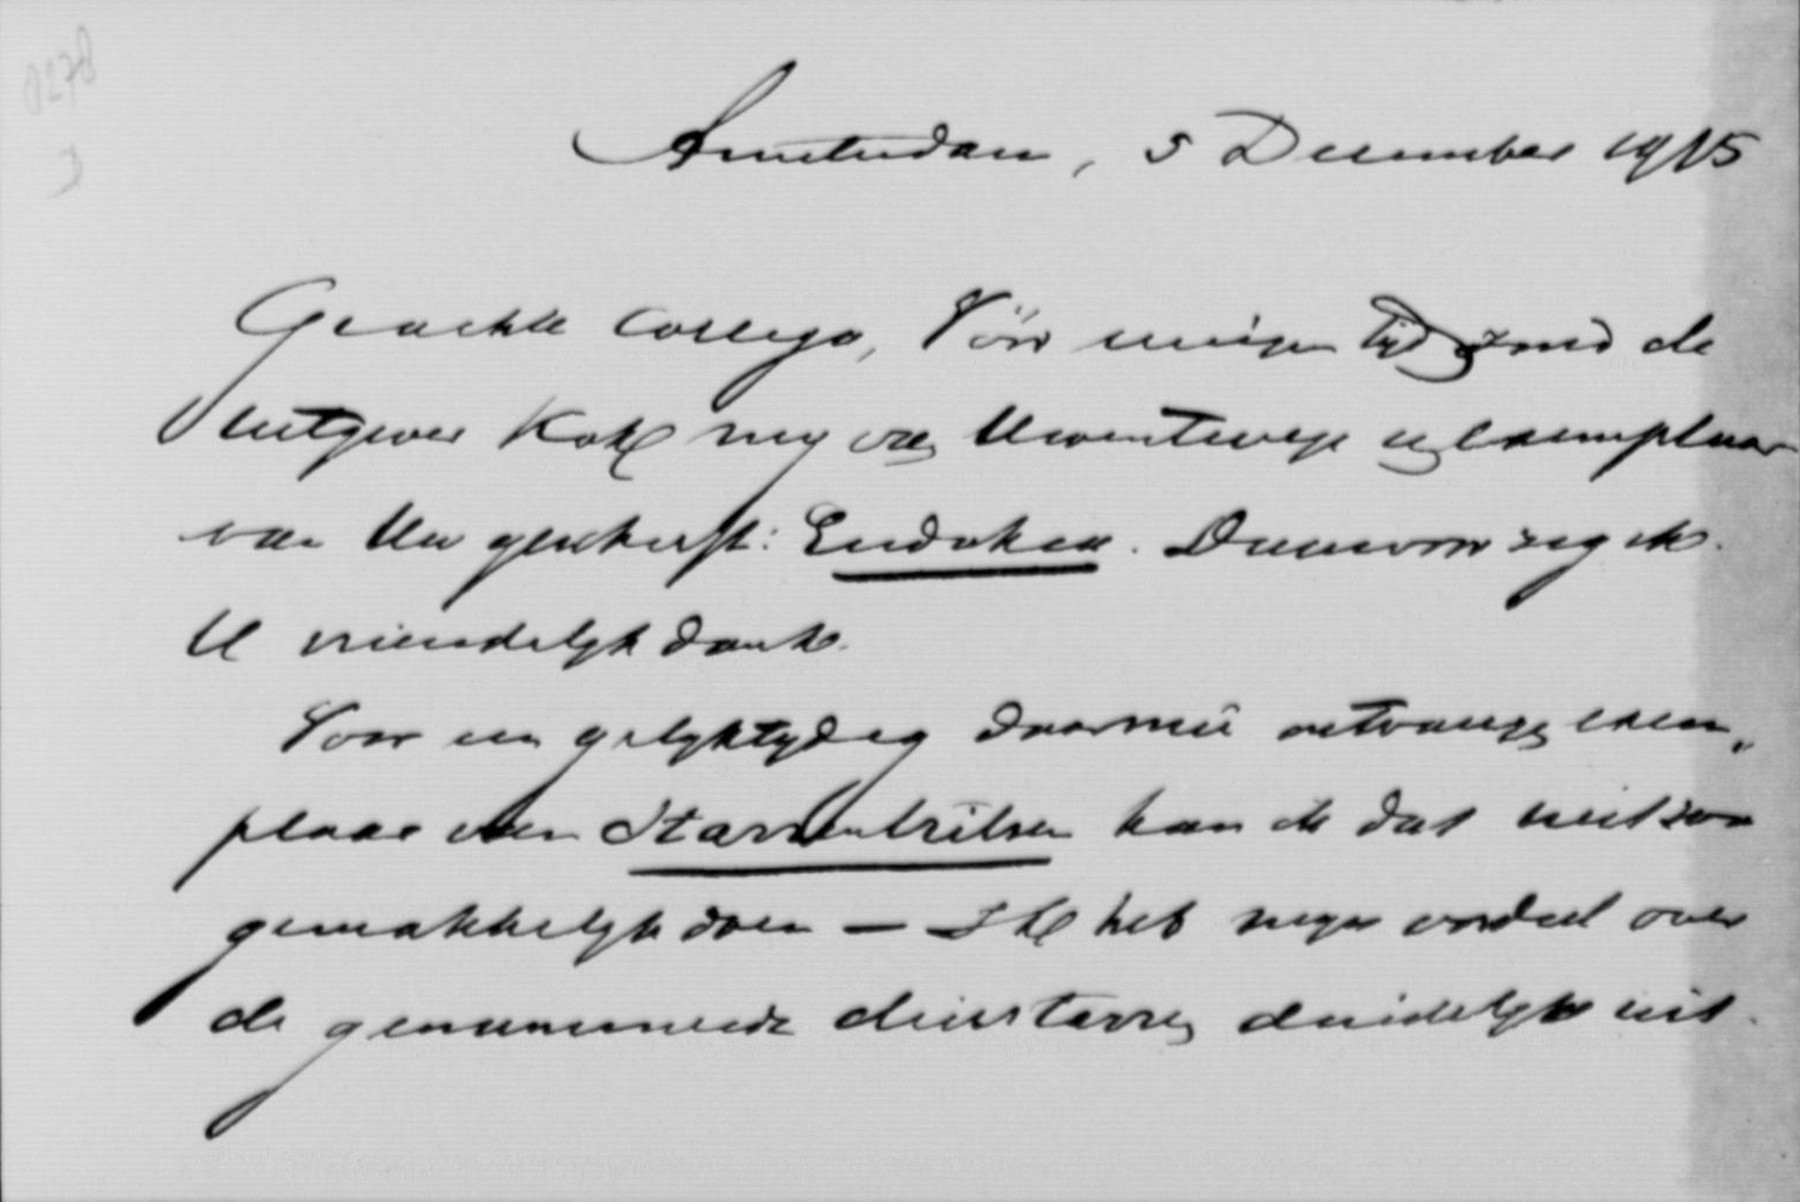 0278
Amsterdam, 5 December 1915
Geachte Collega, Vóór eenigen tijd zond de
uitgever Kok mij van Uwentwege exemplaar
van Uw geschrift: Eudokia. Daarvoor zeg ik
U vriendelijk dank.
Voor een gelijktijdig daarmee ontvangen exem„
plaar van Starrentrilsen kan ik dat niet zoo
gemakkelijk doen — Ik heb mijn oordeel over
de genummerde duidelijk uit